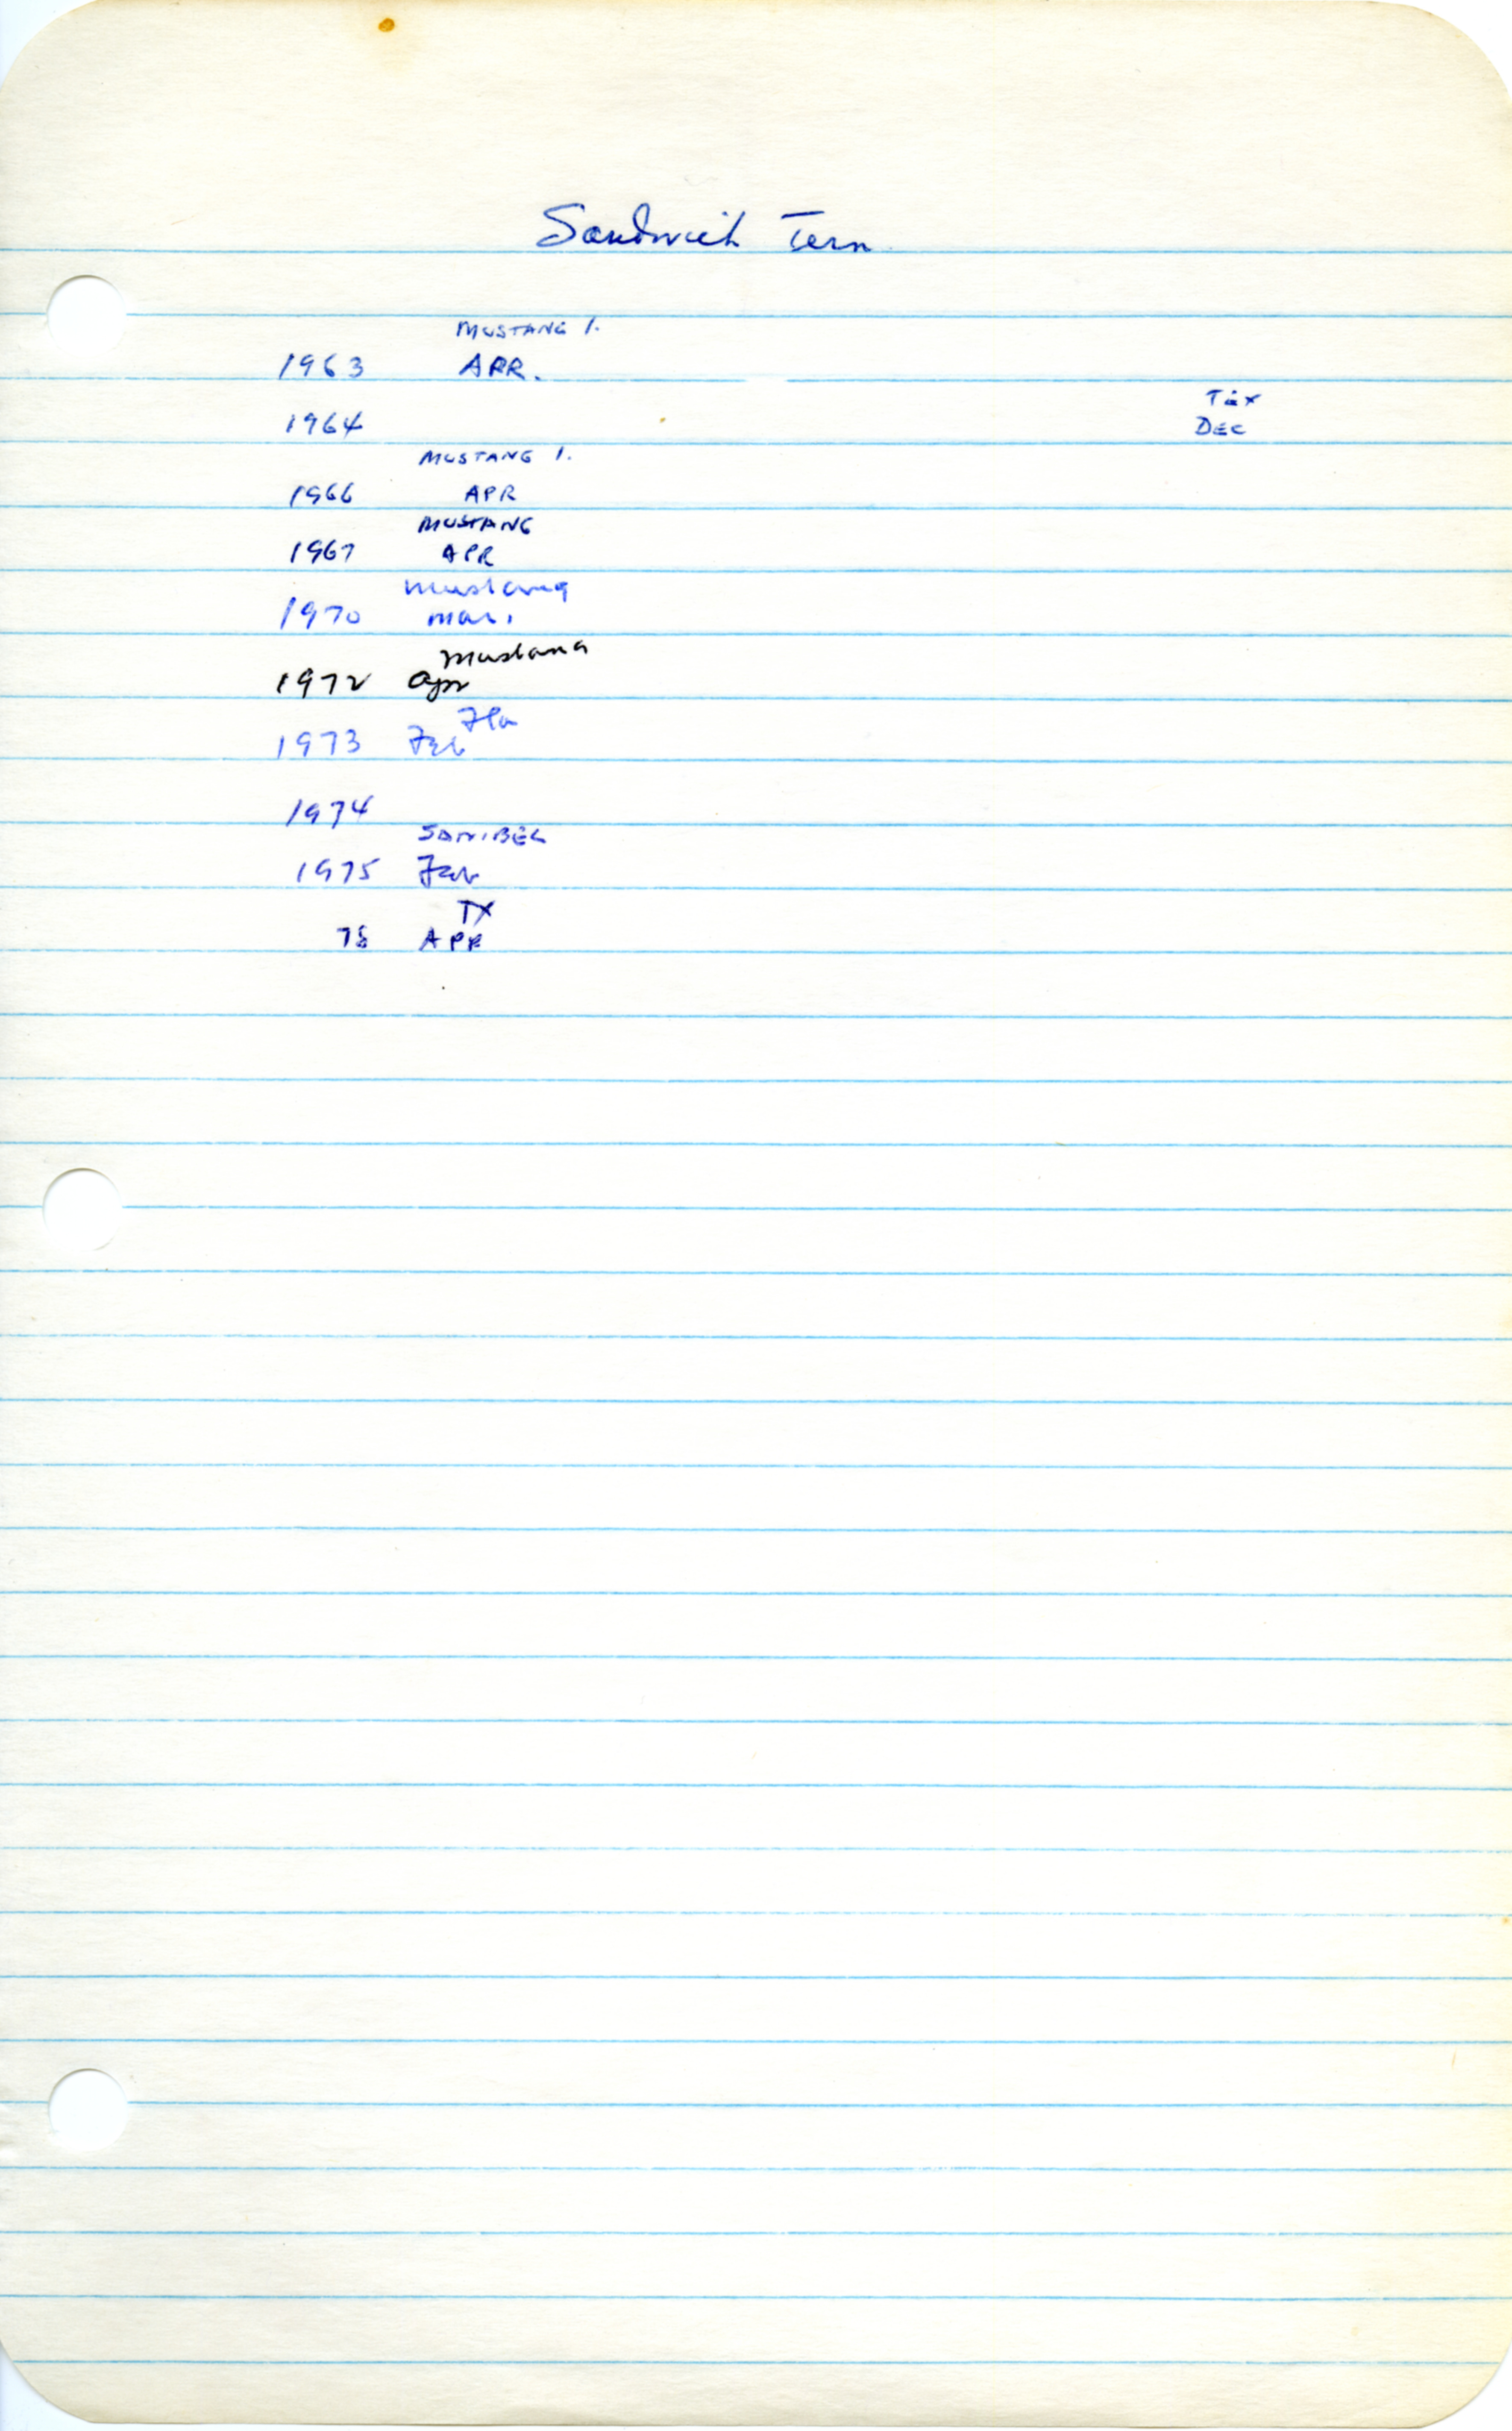 Sandwich Tern
MUSTANG I.
1963 APR.
TEX
1964 DEC
MUSTANG I.
1966 APR
MUSTANG
1967 APR
Mustang
1970 Mar.
Mustang
1972 Apr
Fla
1973 Feb
1974
SANIBEL
1975 Feb
TX
78 APR